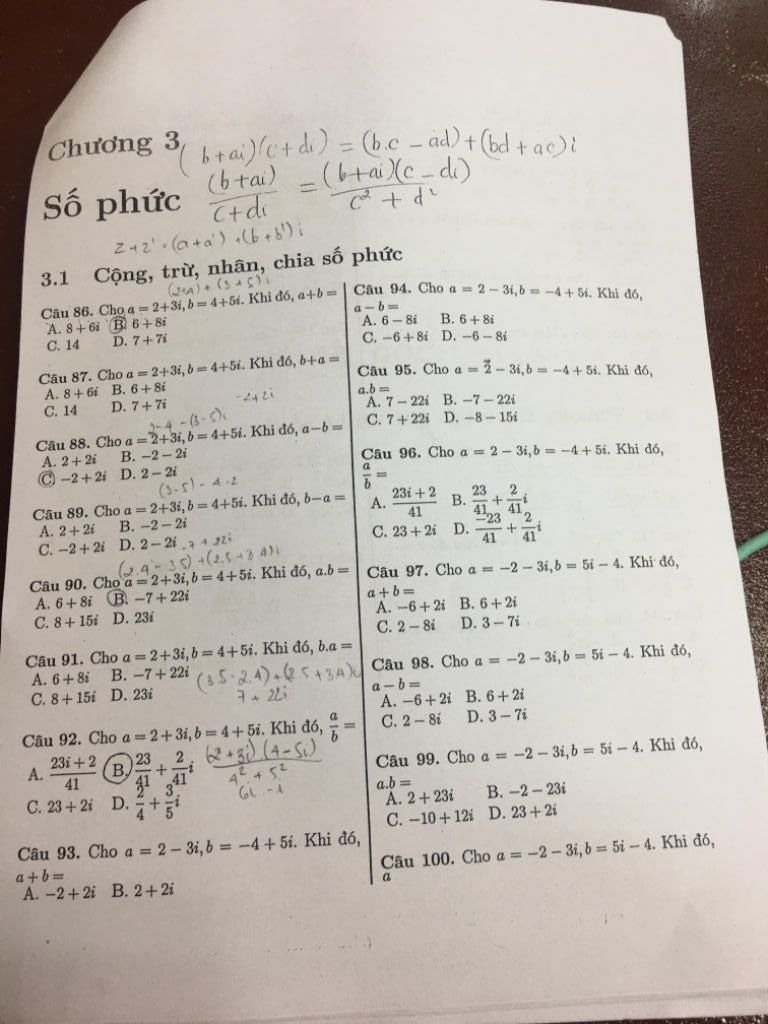 Chương 3
(b+ai)(c+di) = (b.c - ad) + (bd + ac)i
Số phức
(b+ai)/(c+di) = (b+ai)(c-di)/(c² + d²)
z+z' = (a+a') + (b+b')i
3.1 Cộng, trừ, nhân, chia số phức
(2+4) + (3+5)i
Câu 86. Cho a = 2+3i, b = 4+5i. Khi đó, a+b =
A. 8 + 6i B. 6 + 8i
C. 14 D. 7 + 7i
Câu 87. Cho a = 2+3i, b = 4+5i. Khi đó, b+a =
A. 8 + 6i B. 6 + 8i
C. 14 D. 7 + 7i
-2+2i
2-4 - (3-5)i
Câu 88. Cho a = 2+3i, b = 4+5i. Khi đó, a−b =
A. 2 + 2i B. −2 − 2i
C. −2 + 2i D. 2 − 2i
Câu 89. Cho a = 2+3i, b = 4+5i. Khi đó, b−a =
A. 2 + 2i B. −2 − 2i
C. −2 + 2i D. 2 − 2i
-7 + 22i
(2.4 - 3.5) + (2.5 + 3.4)i
Câu 90. Cho a = 2+3i, b = 4+5i. Khi đó, a.b =
A. 6 + 8i B. −7 + 22i
C. 8 + 15i D. 23i
Câu 91. Cho a = 2+3i, b = 4+5i. Khi đó, b.a =
A. 6 + 8i B. −7 + 22i
C. 8 + 15i D. 23i
(3.5 - 2.4) + (2.5 + 3.4)i
7 + 22i
Câu 92. Cho a = 2+3i, b = 4+5i. Khi đó, a/b =
A. (23i + 2)/41 B. 23/41 + 2/41 i
C. 23 + 2i D. 2/4 + 3/5 i
(2+3i).(4-5i)/(4² + 5²)
Câu 93. Cho a = 2 − 3i, b = −4 + 5i. Khi đó,
a + b =
A. −2 + 2i B. 2 + 2i
Câu 94. Cho a = 2 − 3i, b = −4 + 5i. Khi đó,
a − b =
A. 6 − 8i B. 6 + 8i
C. −6 + 8i D. −6 − 8i
Câu 95. Cho a = 2 − 3i, b = −4 + 5i. Khi đó,
a.b =
A. 7 − 22i B. −7 − 22i
C. 7 + 22i D. −8 − 15i
Câu 96. Cho a = 2 − 3i, b = −4 + 5i. Khi đó,
a/b =
A. (23i + 2)/41 B. 23/41 + 2/41 i
C. 23 + 2i D. −23/41 + 2/41 i
Câu 97. Cho a = −2 − 3i, b = 5i − 4. Khi đó,
a + b =
A. −6 + 2i B. 6 + 2i
C. 2 − 8i D. 3 − 7i
Câu 98. Cho a = −2 − 3i, b = 5i − 4. Khi đó,
a − b =
A. −6 + 2i B. 6 + 2i
C. 2 − 8i D. 3 − 7i
Câu 99. Cho a = −2 − 3i, b = 5i − 4. Khi đó,
a.b =
A. 2 + 23i B. −2 − 23i
C. −10 + 12i D. 23 + 2i
Câu 100. Cho a = −2 − 3i, b = 5i − 4. Khi đó,
a